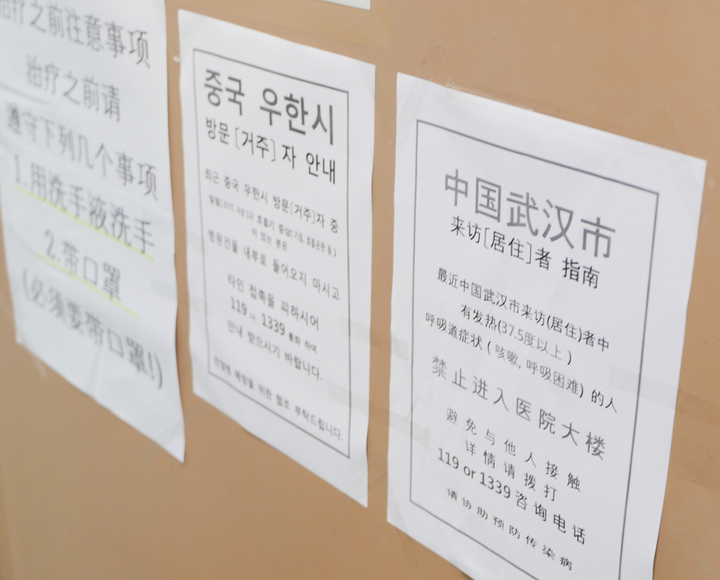 治疗之前注意事项
治疗之前请
遵守下列几个事项
1.用洗手液洗手
2.带口罩
(必须要带口罩!)
중국 우한시
방문 [거주] 자 안내
최근 중국 우한시 방문[거주]자 중
이 있는 분은
병원건물 내부로 들어오지 마시고
타인 접촉을 피하시어
119 나 1339 통화 하여
안내 받으시기 바랍니다.
감염병 예방을 위한 협조 부탁드립니다.
中国武汉市
来访[居住]者 指南
最近中国武汉市来访(居住)者中
有发热(37.5度以上)
呼吸道症状 ( 咳嗽, 呼吸困难) 的人
禁止进入医院大楼
避免与他人接触
详情请拨打
119 or 1339 咨询电话
请协助预防传染病